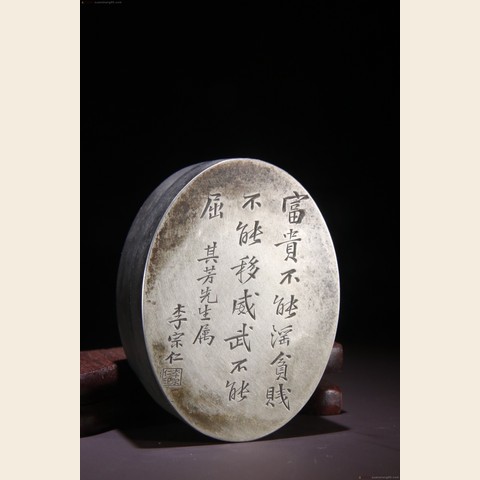 富貴不能淫貧賤
不能移威武不能
屈
其芳先生属
李宗仁